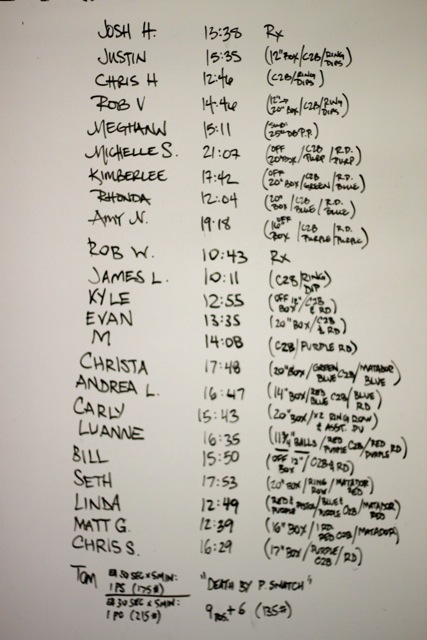 JOSH H. 13:38 Rx
JUSTIN 15:35 (12" BOX/C2B/RING DIPS)
CHRIS H 12:46 (C2B/RING DIPS)
ROB V 14:46 20" BOX/C2B/RING DIPS)
MEGHANN 15:11 25# DB P.P.)
MICHELLE S. 21:07 (OFF 20" BOX/C2B PURP/R.D. PURP)
KIMBERLEE 17:42 (OFF 20" BOX/C2B GREEN/R.D. BLUE)
RHONDA 12:04 (20" BOX/C2B BLUE/R.D. BLUE)
AMY N. 19:18 (OFF 16" BOX/C2B PURPLE/R.D. PURPLE)
ROB W. 10:43 Rx
JAMES L. 10:11 (C2B/RING DIP)
KYLE 12:55 (OFF 12" BOX/C2B & RD)
EVAN 13:35 (20" BOX/C2B & RD)
M 14:08 (C2B/PURPLE RD)
CHRISTA 17:48 (20" BOX/GREEN BLUE C2B/MATADOR BLUE)
ANDREA L. 16:47 (14" BOX/RED BLUE C2B/BLUE RD)
CARLY 15:43 (20" BOX/x2 RING ROW & ASST. DU)
LUANNE 16:35 (11¾" BALLS/RED PURPLE C2B/RED PURPLE RD)
BILL 15:50 (OFF 12" BOX/C2B & RD)
SETH 17:53 (20" BOX/RING ROW/MATADOR RED)
LINDA 12:49 PURPLE BLUE & PURPLE C2B/MATADOR RED)
MATT G. 12:39 (16" BOX/1 RD RED C2B/MATADOR)
CHRIS S. 16:29 (17" BOX/PURPLE C2B/RD)
TOM @ 30 SEC x 5 MIN: "DEATH BY P. SNATCH"
1 PS (175#)
@ 30 SEC x 5 MIN: 9 RDS. + 6 (135#)
1 PC (215#)